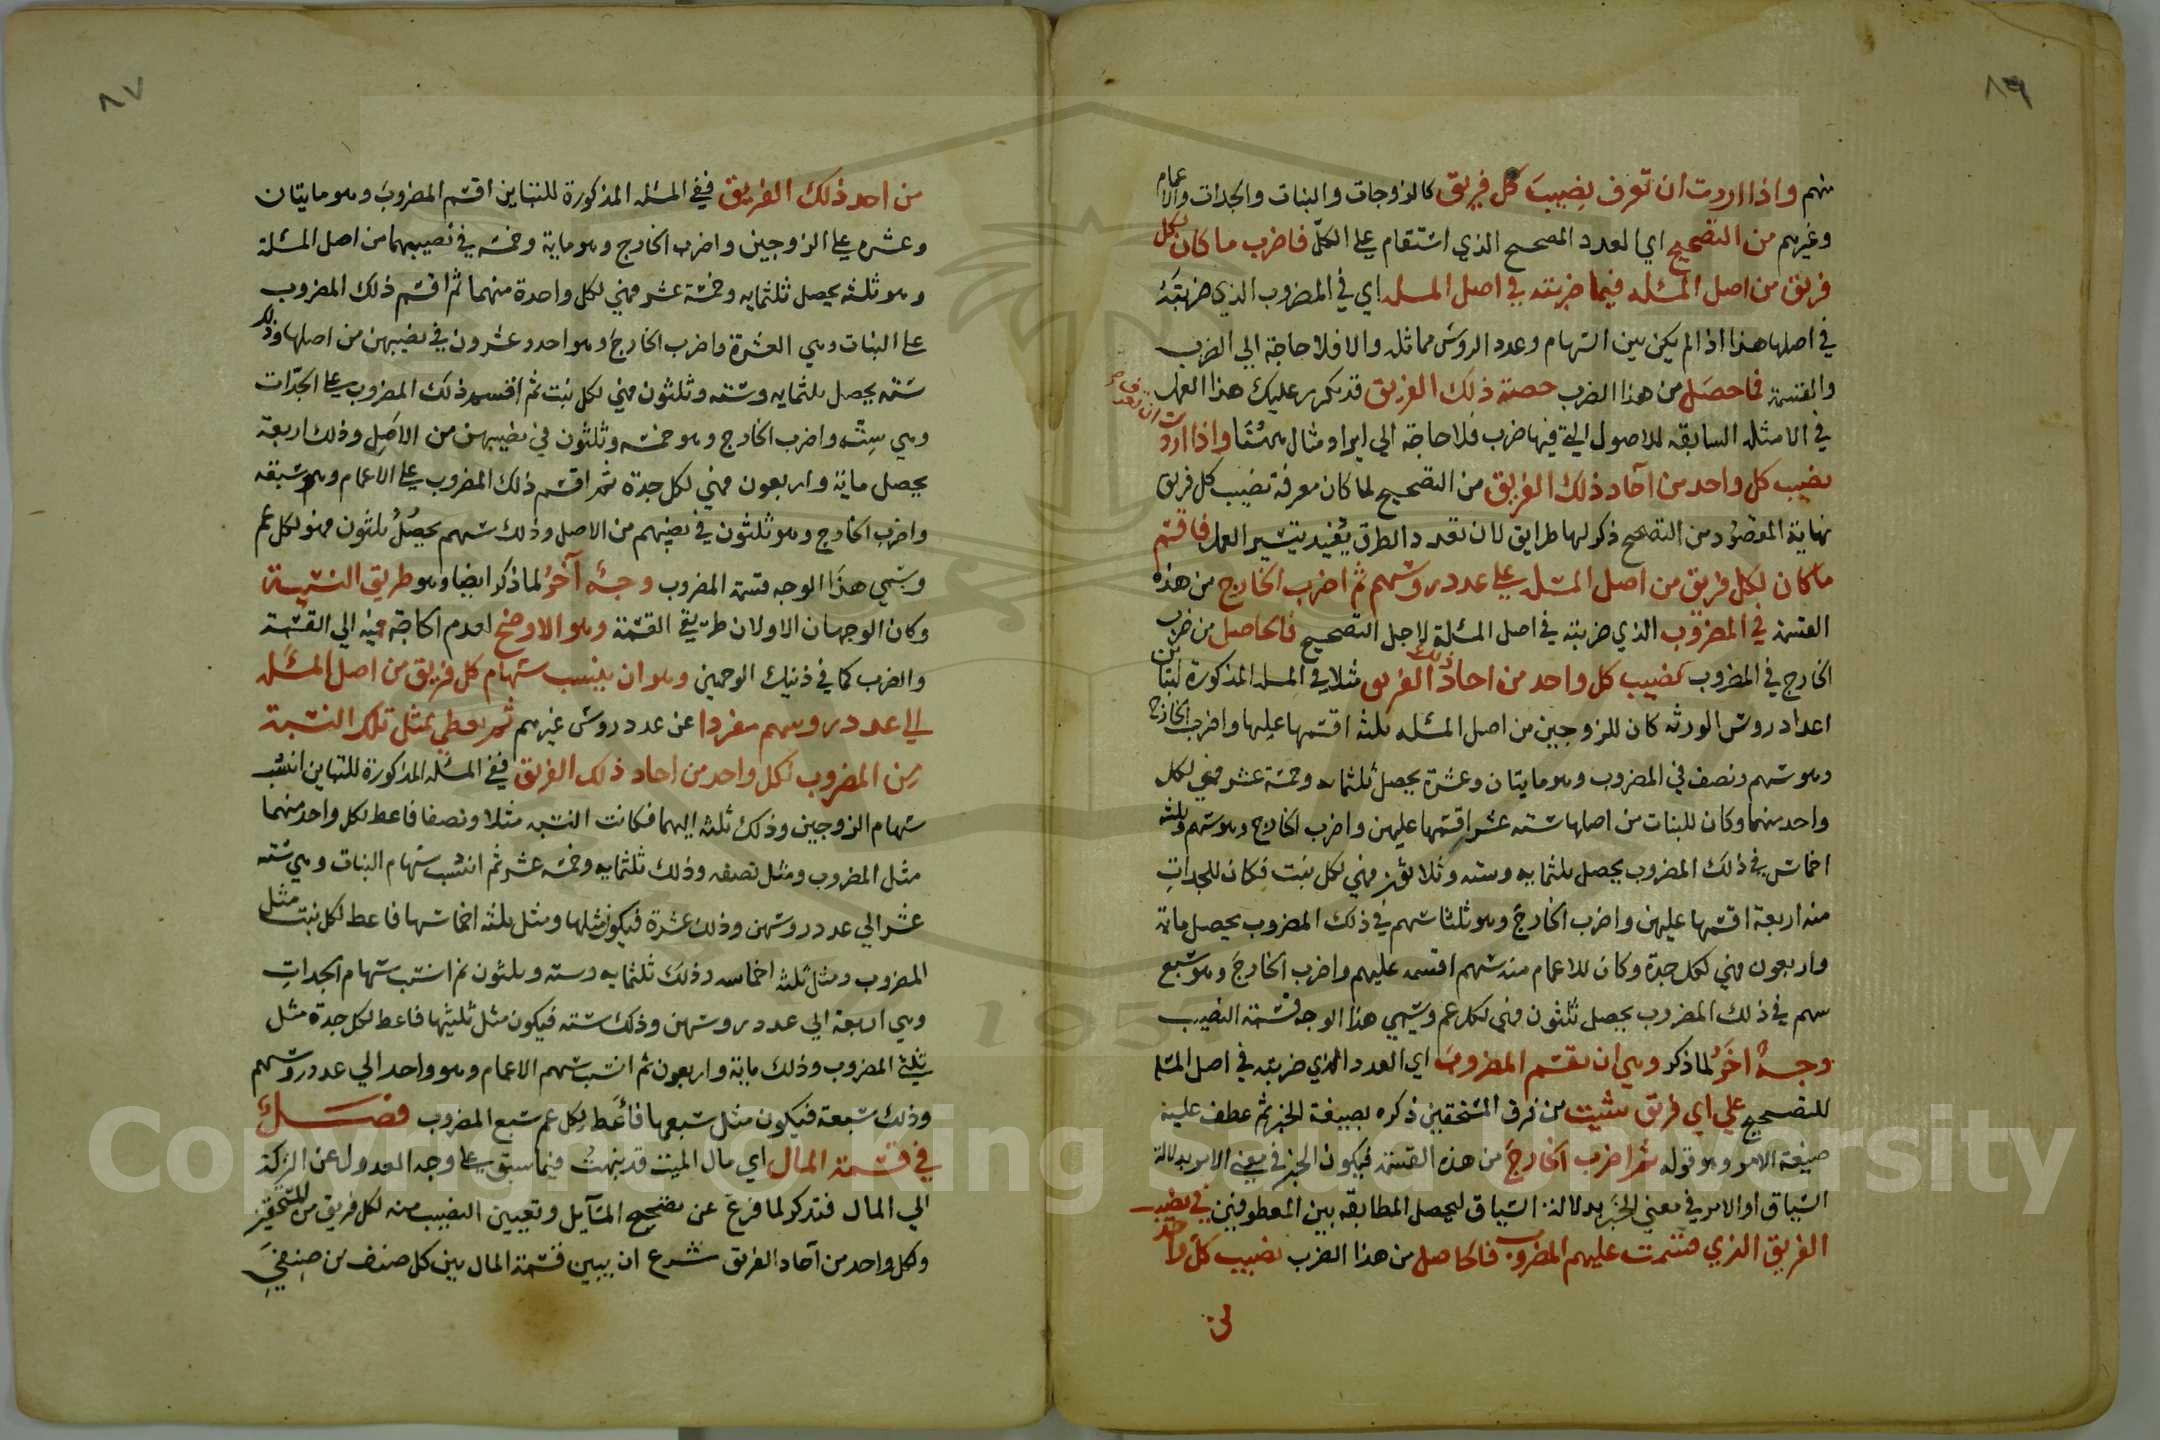 ٨٦
منهم واذا اردت ان تعرف نصيب كل فريق كالزوجات والبنات والجدات والاعمام
وغيرهم من التصحيح اي العدد المصحح الذي استقام علي الكل فاضرب ما كان لكل
فريق من اصل المسئله فيما ضربته في اصل المسله اي في المضروب الذي ضربته
في اصلها هذا اذا لم يكن بين السهام وعدد الروس مماثله والا فلا حاجة الي الضرب
والقسمة فما حصل من هذا الضرب حصة ذلك الفريق قد تكرر عليك هذا العمل
في الامثله السابقه للاصول التي فيها ضرب فلا حاجة الي ايراد مثال ههنا واذا اردت
ان تعرف
نصيب كل واحد من آحاد ذلك الفريق من التصحيح لما كان معرفة نصيب كل فريق
نهاية المقصود من التصحيح ذكر لها طرايق لان تعدد الطرق يفيد تيسير العمل فاقسم
ما كان لكل فريق من اصل المسئله علي عدد روسهم ثم اضرب الخارج من هذه
القسمة في المضروب الذي ضربته في اصل المسئلة لاجل التصحيح فالحاصل من ضرب
الخارج في المضروب نصيب كل واحد من احاد ذلك الفريق مثلا في المسله المذكورة لتباين
اعداد روس الورثه كان للزوجين من اصل المسئله ثلثه اقسمها عليها واضرب الخارج
وهو سهم ونصف في المضروب وهو مايتان وعشرة يحصل ثلثمايه وخمسة عشر فهي لكل
واحد منهما وكان للبنات من اصلها سته عشر اقسمها عليهن واضرب الخارج وهو سهم وثلثة
اخماس في ذلك المضروب يحصل ثلثمايه وسته وثلاثون فهي لكل بنت فكان للجدات
منه اربعة اقسمها عليهن واضرب الخارج وهو ثلثا سهم في ذلك المضروب يحصل ماية
واربعون فهي لكل جدة وكان للاعمام منه سهم اقسمه عليهم واضرب الخارج وهو سبع
سهم في ذلك المضروب يحصل ثلثون فهي لكل عم ويسمي هذا الوجه قسمة النصيب
وجه اخر لما ذكر وهي ان تقسم المضروب اي العدد الذي ضربته في اصل المسله
للتصحيح علي اي فريق شيت من فرق المستحقين ذكره بصيغة الخبر ثم عطف عليه
صيغة الامر وهو قوله ثم اضرب الخارج من هذه القسمة فيكون الخبر في معني الامر بدلالة
السياق او الامر في معني الخبر بدلالة السياق ليحصل المطابقه بين المعطوفين في نصيب
الفريق الذي قسمت عليهم المضروب فالحاصل من هذا الضرب نصيب كل واحد
من
٨٧
من احد ذلك الفريق ففي المسئله المذكورة للتباين اقسم المضروب وهو مايتان
وعشره علي الزوجين واضرب الخارج وهو ماية وخمسه في نصيبهما من اصل المسئلة
وهو ثلثه يحصل ثلثمايه وخمسة عشر فهي لكل واحدة منهما ثم اقسم ذلك المضروب
علي البنات وهي العشرة واضرب الخارج وهو احد وعشرون في نصيبهن من اصلها وذلك
سته يحصل ثلثمايه وسته وثلثون فهي لكل بنت ثم اقسم ذلك المضروب علي الجدات
وهي سته واضرب الخارج وهو خمسه وثلثون في نصيبهن من الاصل وذلك اربعة
يحصل ماية واربعون فهي لكل جدة ثم اقسم ذلك المضروب علي الاعمام وهم سبعه
واضرب الخارج وهو ثلثون في نصيبهم من الاصل وذلك سهم يحصل ثلثون فهو لكل عم
ويسمي هذا الوجه قسمة المضروب وجه آخر لما ذكر ايضا وهو طريق النسبة
وكان الوجهان الاولان طريقي القسمة وهو الاوضح لعدم الحاجة فيه الي القسمة
والضرب كما في ذنيك الوجهين وهو ان ينسب سهام كل فريق من اصل المسئله
الي عدد روسهم مفردا عن عدد روس غيرهم ثم يعطي بمثل تلك النسبة
من المضروب لكل واحد من احاد ذلك الفريق ففي المسئله المذكورة للتباين انسب
سهام الزوجين وذلك ثلثه اليهما فكانت النسبه مثلا ونصفا فاعط لكل واحد منهما
مثل المضروب ومثل نصفه وذلك ثلثمايه وخمسه عشر ثم انسب سهام البنات وهي سته
عشر الي عدد روسهن وذلك عشرة فيكون مثلها ومثل ثلثه اخماسها فاعط لكل بنت مثل
المضروب ومثل ثلثه اخماسه وذلك ثلثمايه وسته وثلثون ثم انسب سهام الجدات
وهي اربعة الي عدد روسهن وذلك سته فيكون مثل ثلثيها فاعط لكل جدة مثل
ثلثي المضروب وذلك ماية واربعون ثم انسب سهم الاعمام وهو واحد الي عدد روسهم
وذلك سبعة فيكون مثل سبعها فاعط لكل عم سبع المضروب فصل
في قسمة المال اي مال الميت قد نبهت فيما سبق علي وجه العدول عن التركة
الي المال فتذكر لما فرغ عن تصحيح المسايل وتعيين النصيب منه لكل فريق من المستحقين
ولكل واحد من آحاد الفريق شرع ان يبين قسمة المال بين كل صنف من صنفي